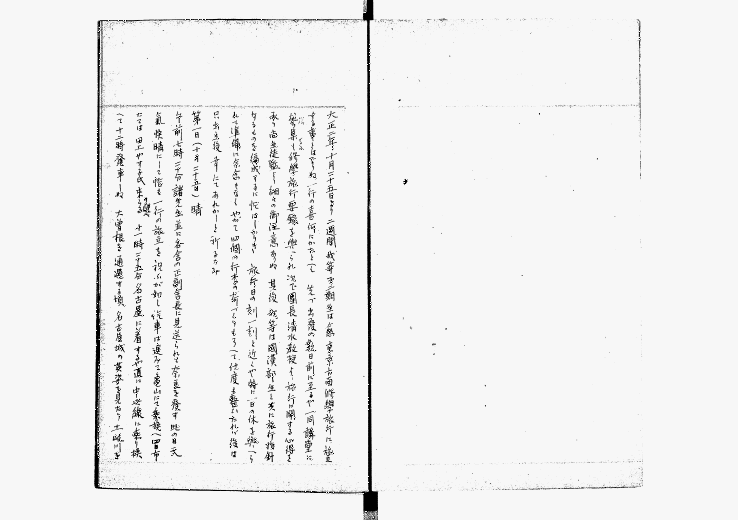 大正二年十月二十五日より二週間我等第二期生は東京方面修学旅行に旅立
する事とはなりぬ一行の喜何にかたとへん 先づ出発の数日前に至るや一同講堂に
集り修学旅行要録を与へられ次で団長清水教授より旅行に関する心得を
承り尚生徒監より細々の御注意ありぬ 其後我等は国漢部生と共に旅行指針
なるものを編成するに忙はしかりき 旅行日の刻一刻と近くや特に一日の休を与へら
れて準備に余念もなくやがて四個の行李の荷づくりもなりて仕度も整ひたれば後は
只出立後幸にてあれかしと祈るのみ
第一日(十月二十五日)晴
午前七時二十分諸先生並に各舎の正副舎長に見送られて奈良を発す此の日天
気快晴にして恰も一行の旅立を祝ふが如し汽車は進みて亀山にて乗換へ四日市
十一時二十五分名古屋に着するや直に中央線に乗り換
へて十二時発車しぬ 大曽根を通過する頃名古屋城の英姿を見つつ土岐川を